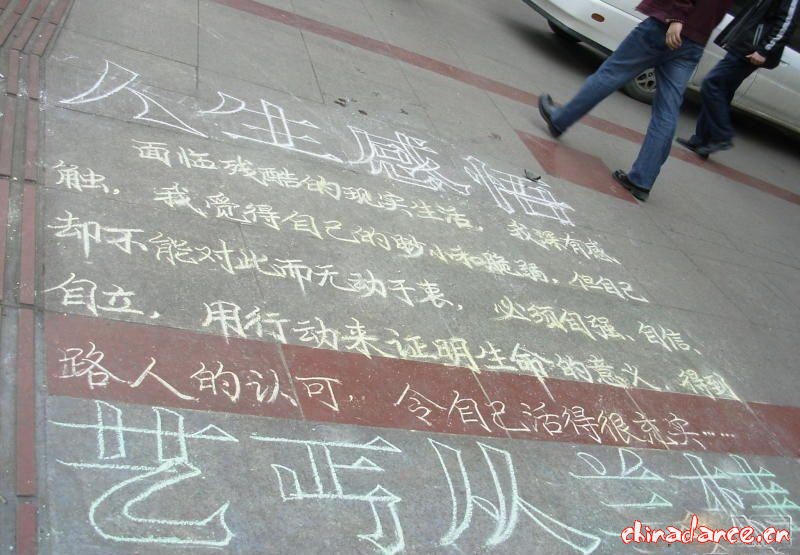 人生感悟
面临残酷的现实生活，我深有感
触，我觉得自己的渺小和脆弱，但自己
却不能对此而无动于衷，必须自强、自信、
自立，用行动来证明生命的意义，得到
路人的认可，令自己活得很充实……
艺丐从
chinadance.cn